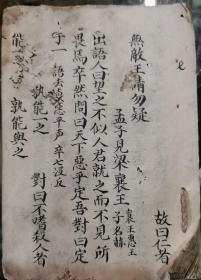 故曰仁者
無敵王請勿疑
孟子見梁襄王 襄王惠王子名赫
出語人曰望之不似人君就之而不見所
畏焉卒然問曰天下惡乎定吾對曰定
于一 語去声惡平声卒七没反
孰能一之 對曰不嗜殺人者
能一之 孰能與之